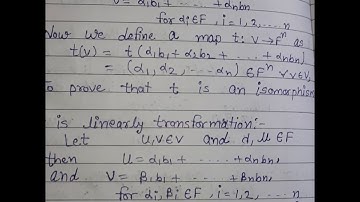 V = α1b1 + ...... + αnbn
for αi ∈ F, i = 1,2, .... n
Now we define a map t: V → Fⁿ as
t(v) = t(α1b1 + α2b2 + .... + αnbn)
= (α1, α2, ---- αn) ∈ Fⁿ ∀ v ∈ V
To prove that t is an isomorphism
is linearly transformation:-
Let u, v ∈ V and α, μ ∈ F
then u = α1b1 + ...... + αnbn,
and V = β1b1 + ..... + βnbn,
for αi, βi ∈ F, i = 1,2, .... n